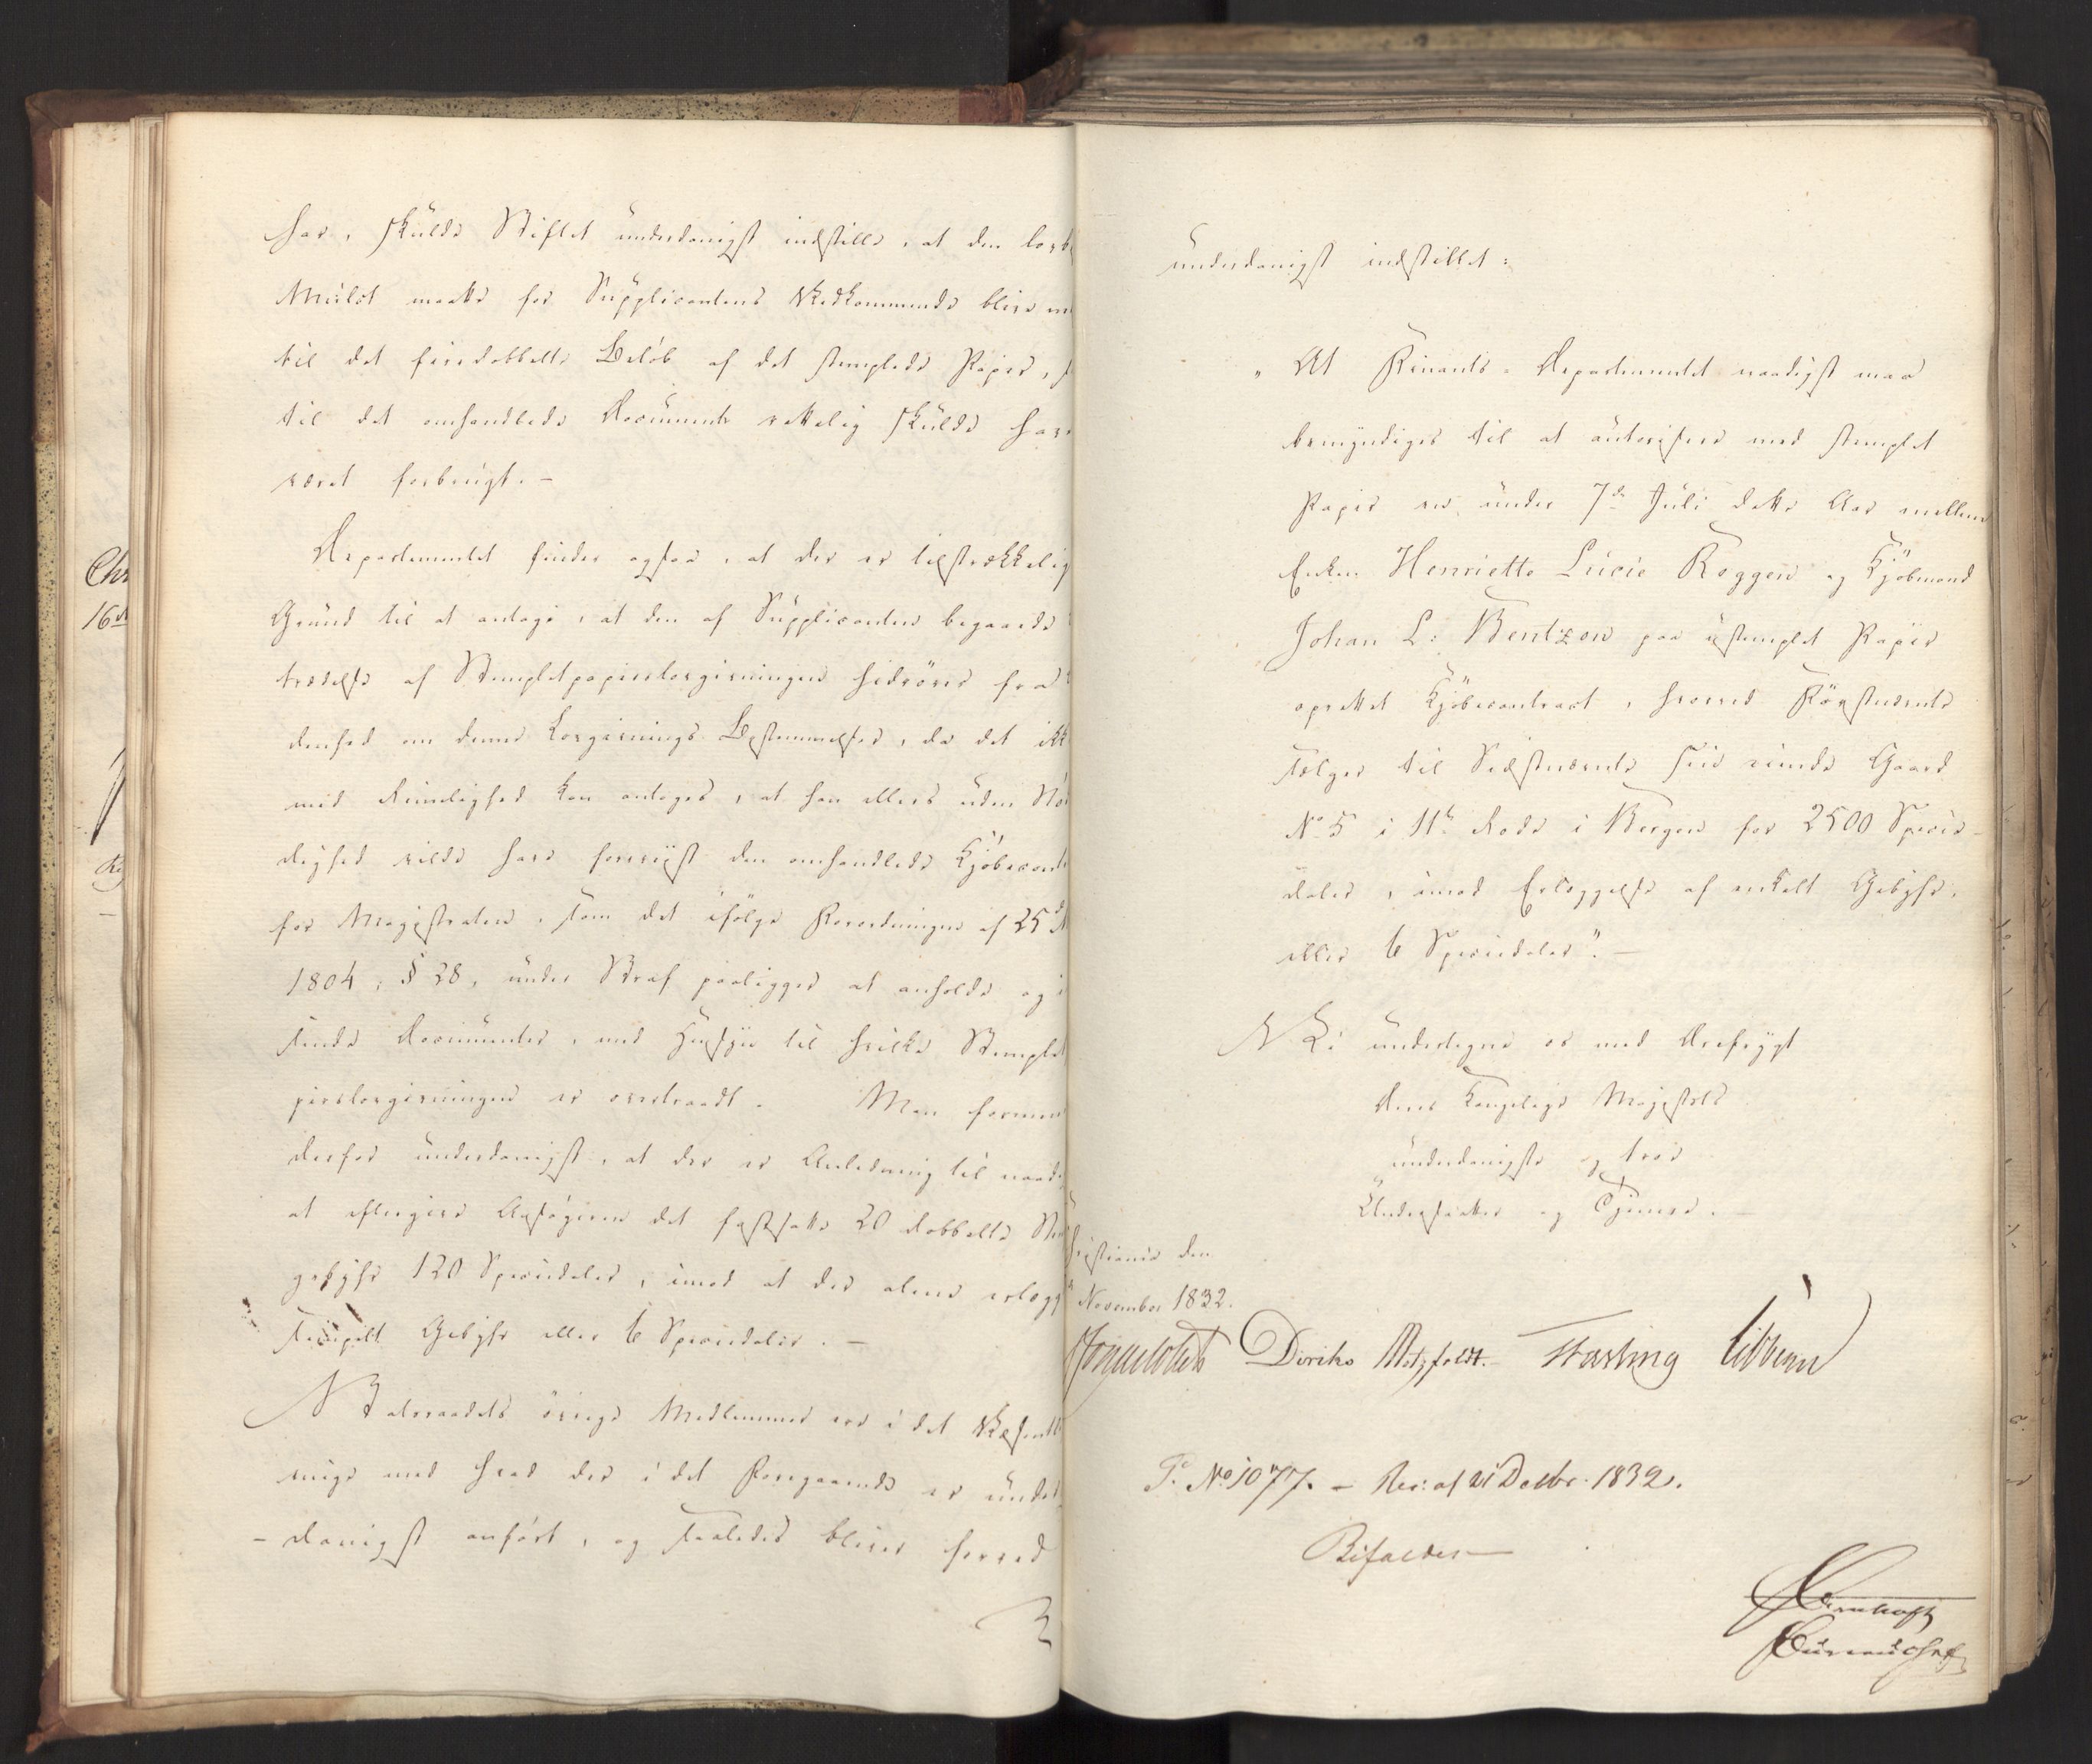 har, skulde Stiftet underdanigst indstille, at den
Mulct maatte for Supplicantens Vedkommende blive
til det firedobbelte Beløb af det stemplede Papir,
til det omhandlede Document rettelig skulde have
været forbrugt. –
Departementet finder ogsaa, at der er tilstrækkelig
Grund til at antage, at den af Supplicanten begaaede
trædelse af Stempletpapirlovgivningen hidrører fra
denhed om denne Lovgivnings Bestemmelser, da det ikke
med Rimelighed kan antages, at han ellers uden Nød
dighed vilde have foreviist den omhandlede Kjøbecont
for Magistraten, som det ifølge Forordningen af 25de
1804, § 28, under Straf paaligger at anholde og
sende Documenter, med Hensyn til hvilke Stemplet
pirslovgivningen er overtraadt. Man formener
derfor underdanigst, at der er Anledning til naadigst
at eftergive Ansøgeren det fastsatte 20 dobbelte
gebyhr 120 Speciedaler, imod at der alene erlægges
simpelt Gebyhr eller 6 Speciedaler. –
Statsraadets øvrige Medlemmer ere i det Væsentlige
enige med hvad der i det Foregaaende er under-
- danigst anført, og saaledes bliver herved
Chr
16de
underdanigst indstillet:
„At Finants-Departementet naadigst maa
bemyndiges til at autorisere med stemplet
Papir en under 7de Juli dette Aar mellem
Enken Henriette Lucie Roggen og Kjøbmand
Johan L: Bentzon paa ustemplet Papir
oprettet Kjøbecontract, hvorved Førstnævnte
sælger til Sidstnævnte sin eiende Gaard
No 5 i 11te Rode i Bergen for 2500 Specie-
daler, imod Erlæggelse af enkelt Gebyhr,
eller 6 Speciedaler“. –
Vi undertegne os med Ærefrygt
Deres Kongelige Majestæts
underdanigste og troe
Undersaatter og Tjenere. –
hristiania den
November 1832.
Diriks Motzfeldt. Fasting Vibbe
P. No 1077. – Res: af 21 Decbr. 1832.
Bifaldes
Bureauchef